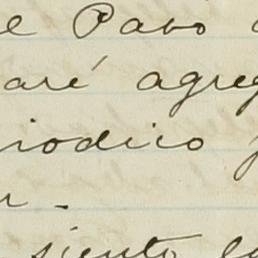 el Pavo
aré agreg
riodico
siento